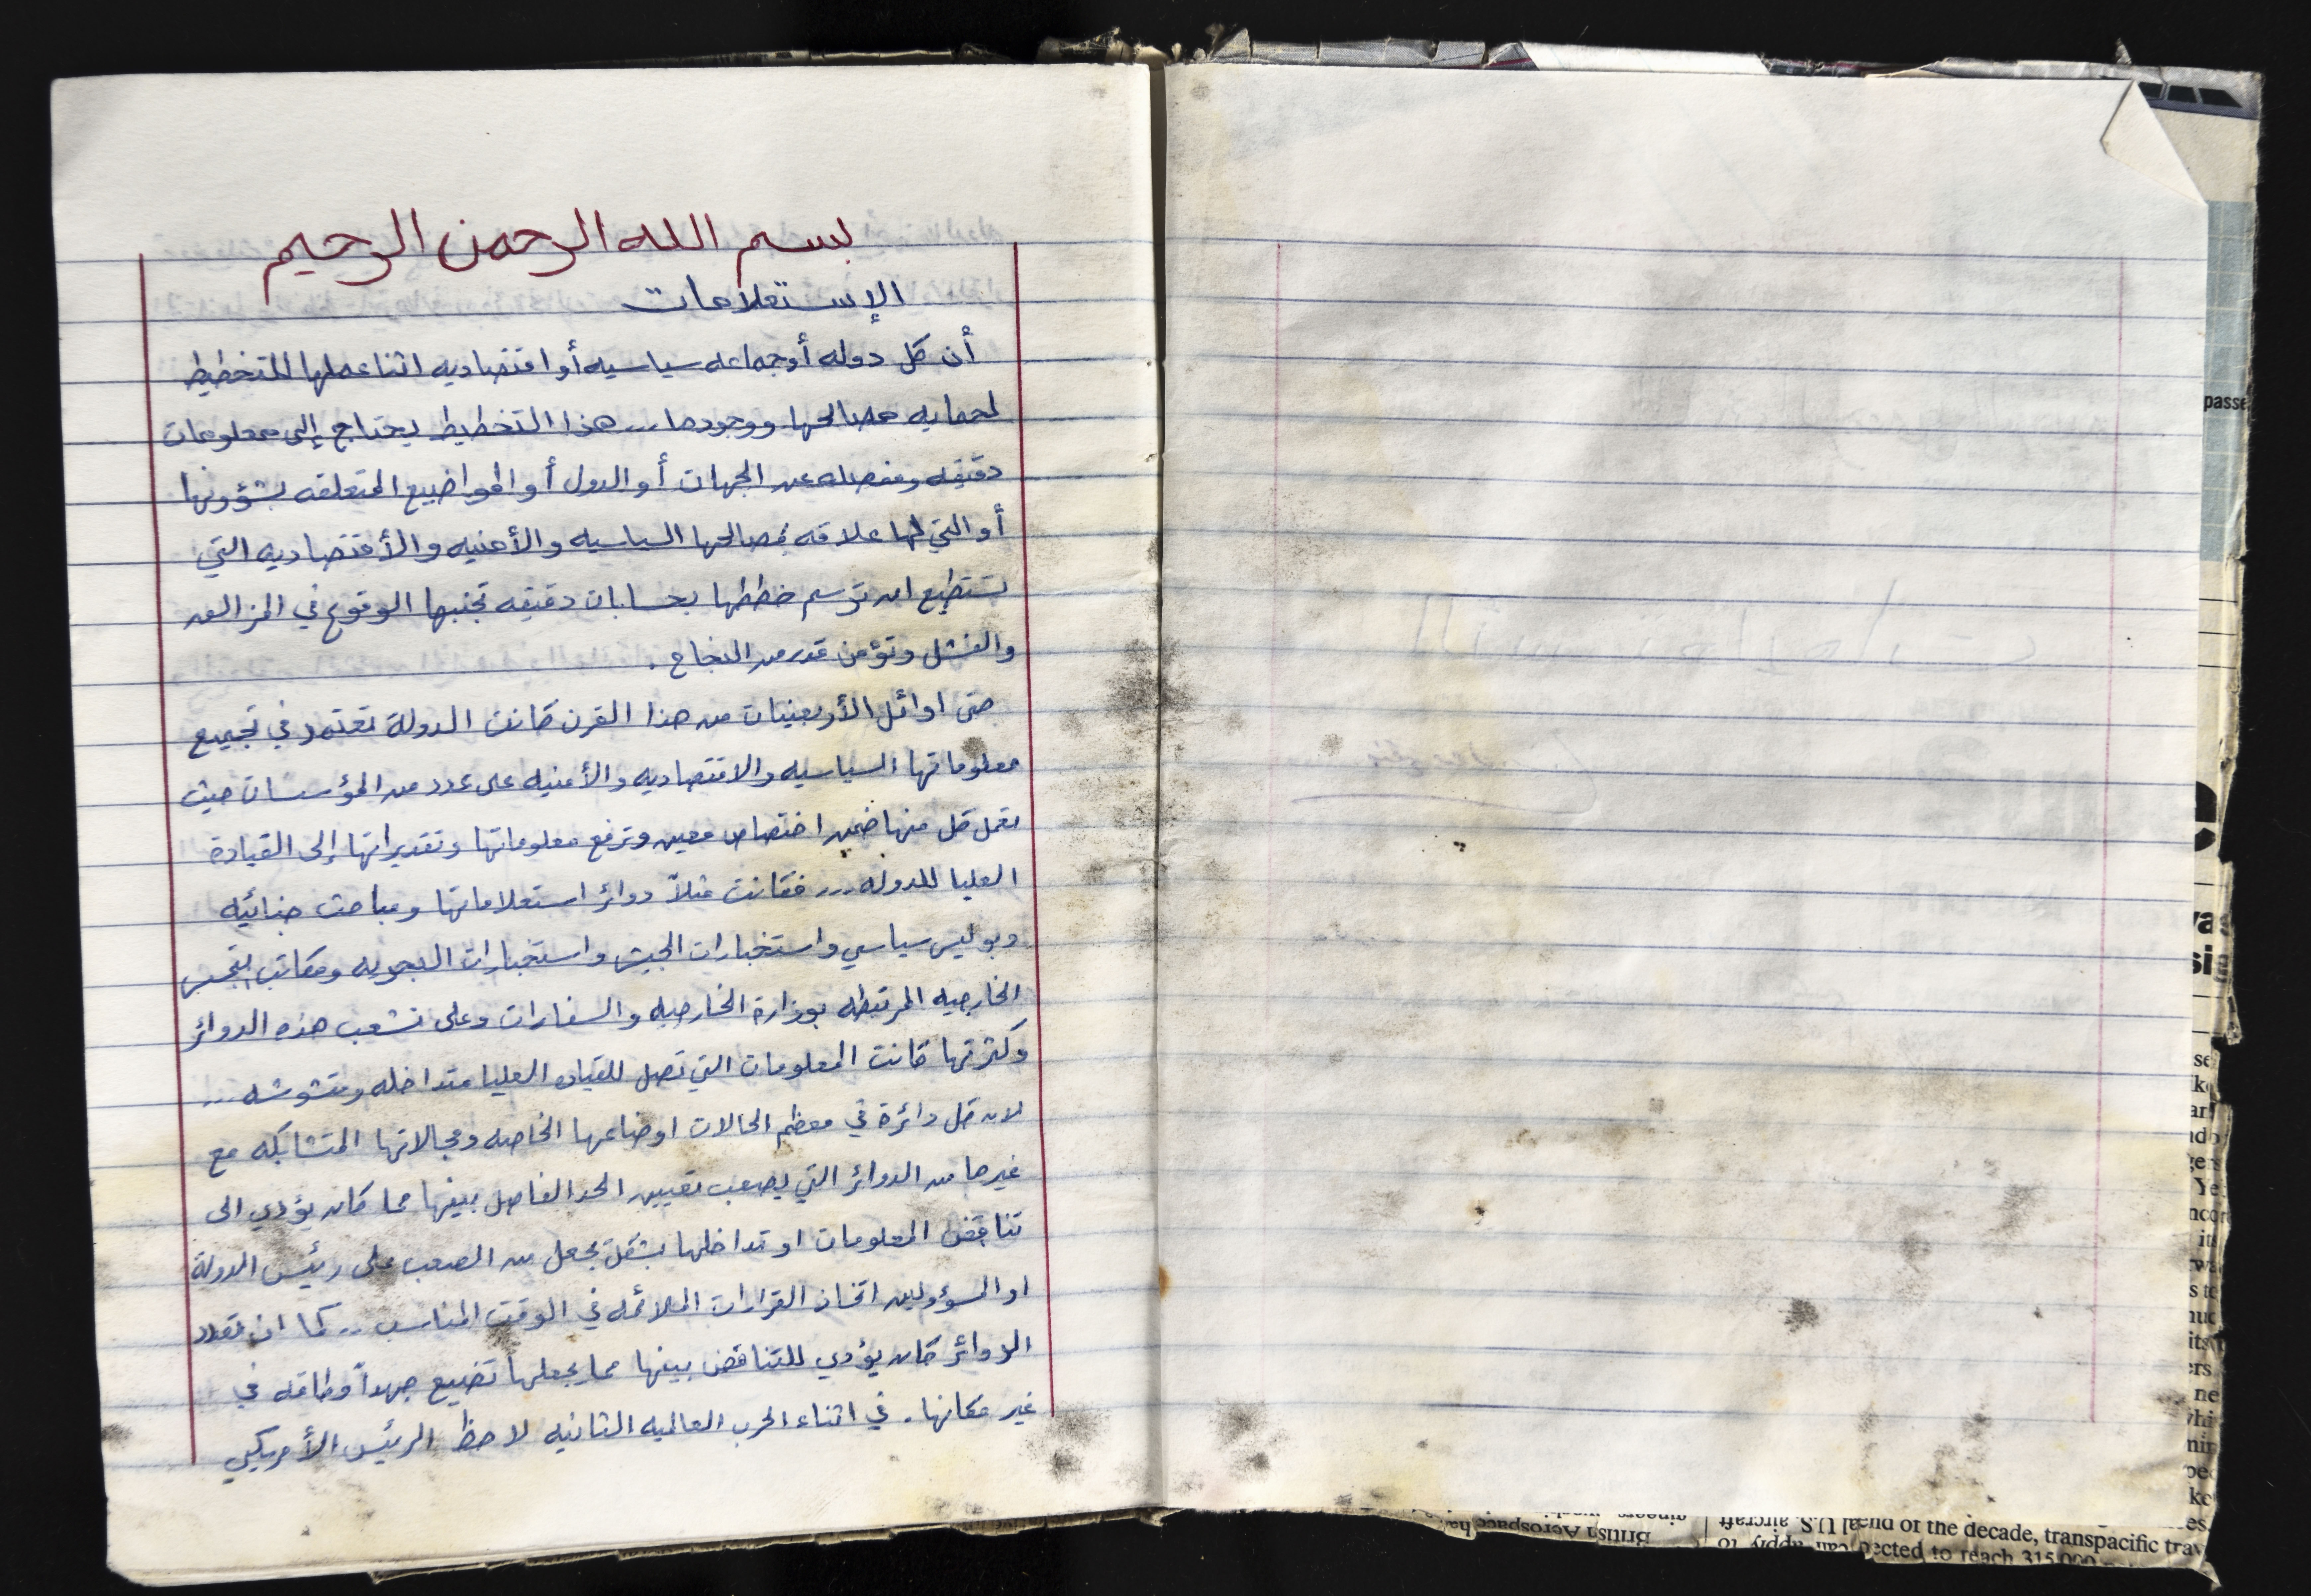 بسم الله الرحمن الرحيم
الإستعلامات
أن كل دوله أو جماعه سياسيه أو اقتصاديه اثنا عملها للتخطيط
لحمايه مصالحها ووجودها... هذا التخطيط يحتاج إلى معلومات
دقيقه ومفصله عن الجهات أو الدول أو المواضيع المتعلقه بشؤونها
أو التي لها علاقه بمصالحها السياسيه والأمنيه والأقتصاديه التي
تستطيع ان ترسم خططها بحسابات دقيقه تجنبها الوقوع في المزالق
والفشل وتؤمن قدر من النجاح .
حتى اوائل الأربعينيات من هذا القرن كانت الدولة تعتمد في تجميع
معلوماتها السياسيه والاقتصاديه والأمنيه على عدد من المؤسسات حيث
تعمل كل منها ضمن اختصاص معين وترفع معلوماتها وتقديراتها إلى القيادة
العليا للدوله... فكانت مثلاً دوائر استعلاماتها ومباحث جنائيه
وبوليس سياسي واستخبارات الجيش واستخبارات البحريه ومكاتب التجسس
الخارجيه المرتبطه بوزارة الخارجيه والسفارات وعلى تشعب هذه الدوائر
وكثرتها كانت المعلومات التي تصل للقياده العليا متداخله ومشوشه ...
لان كل دائرة في معظم الحالات اوضاعها الخاصه ومجالاتها المتشابكه مع
غيرها من الدوائر التي يصعب تعيين الحد الفاصل بينها مما كان يؤدي الى
تناقض المعلومات او تداخلها بشكل يجعل من الصعب على رئيس الدولة
او المسؤولين اتخاذ القرارات الملائمه في الوقت المناسب .. كما ان تعدد
الدوائر كان يؤدي للتناقض بينها مما يجعلها تضيع جهداً وطاقه في
غير مكانها . في اثناء الحرب العالميه الثانيه لاحظ الرئيس الأمريكي
passe
end of the decade, transpacific trav
pected to reach 315,000